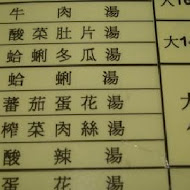 牛肉湯
酸菜肚片湯
蛤蜊冬瓜湯
蛤蜊湯
蕃茄蛋花湯
榨菜肉絲湯
酸辣湯
蛋花湯
大1
大14